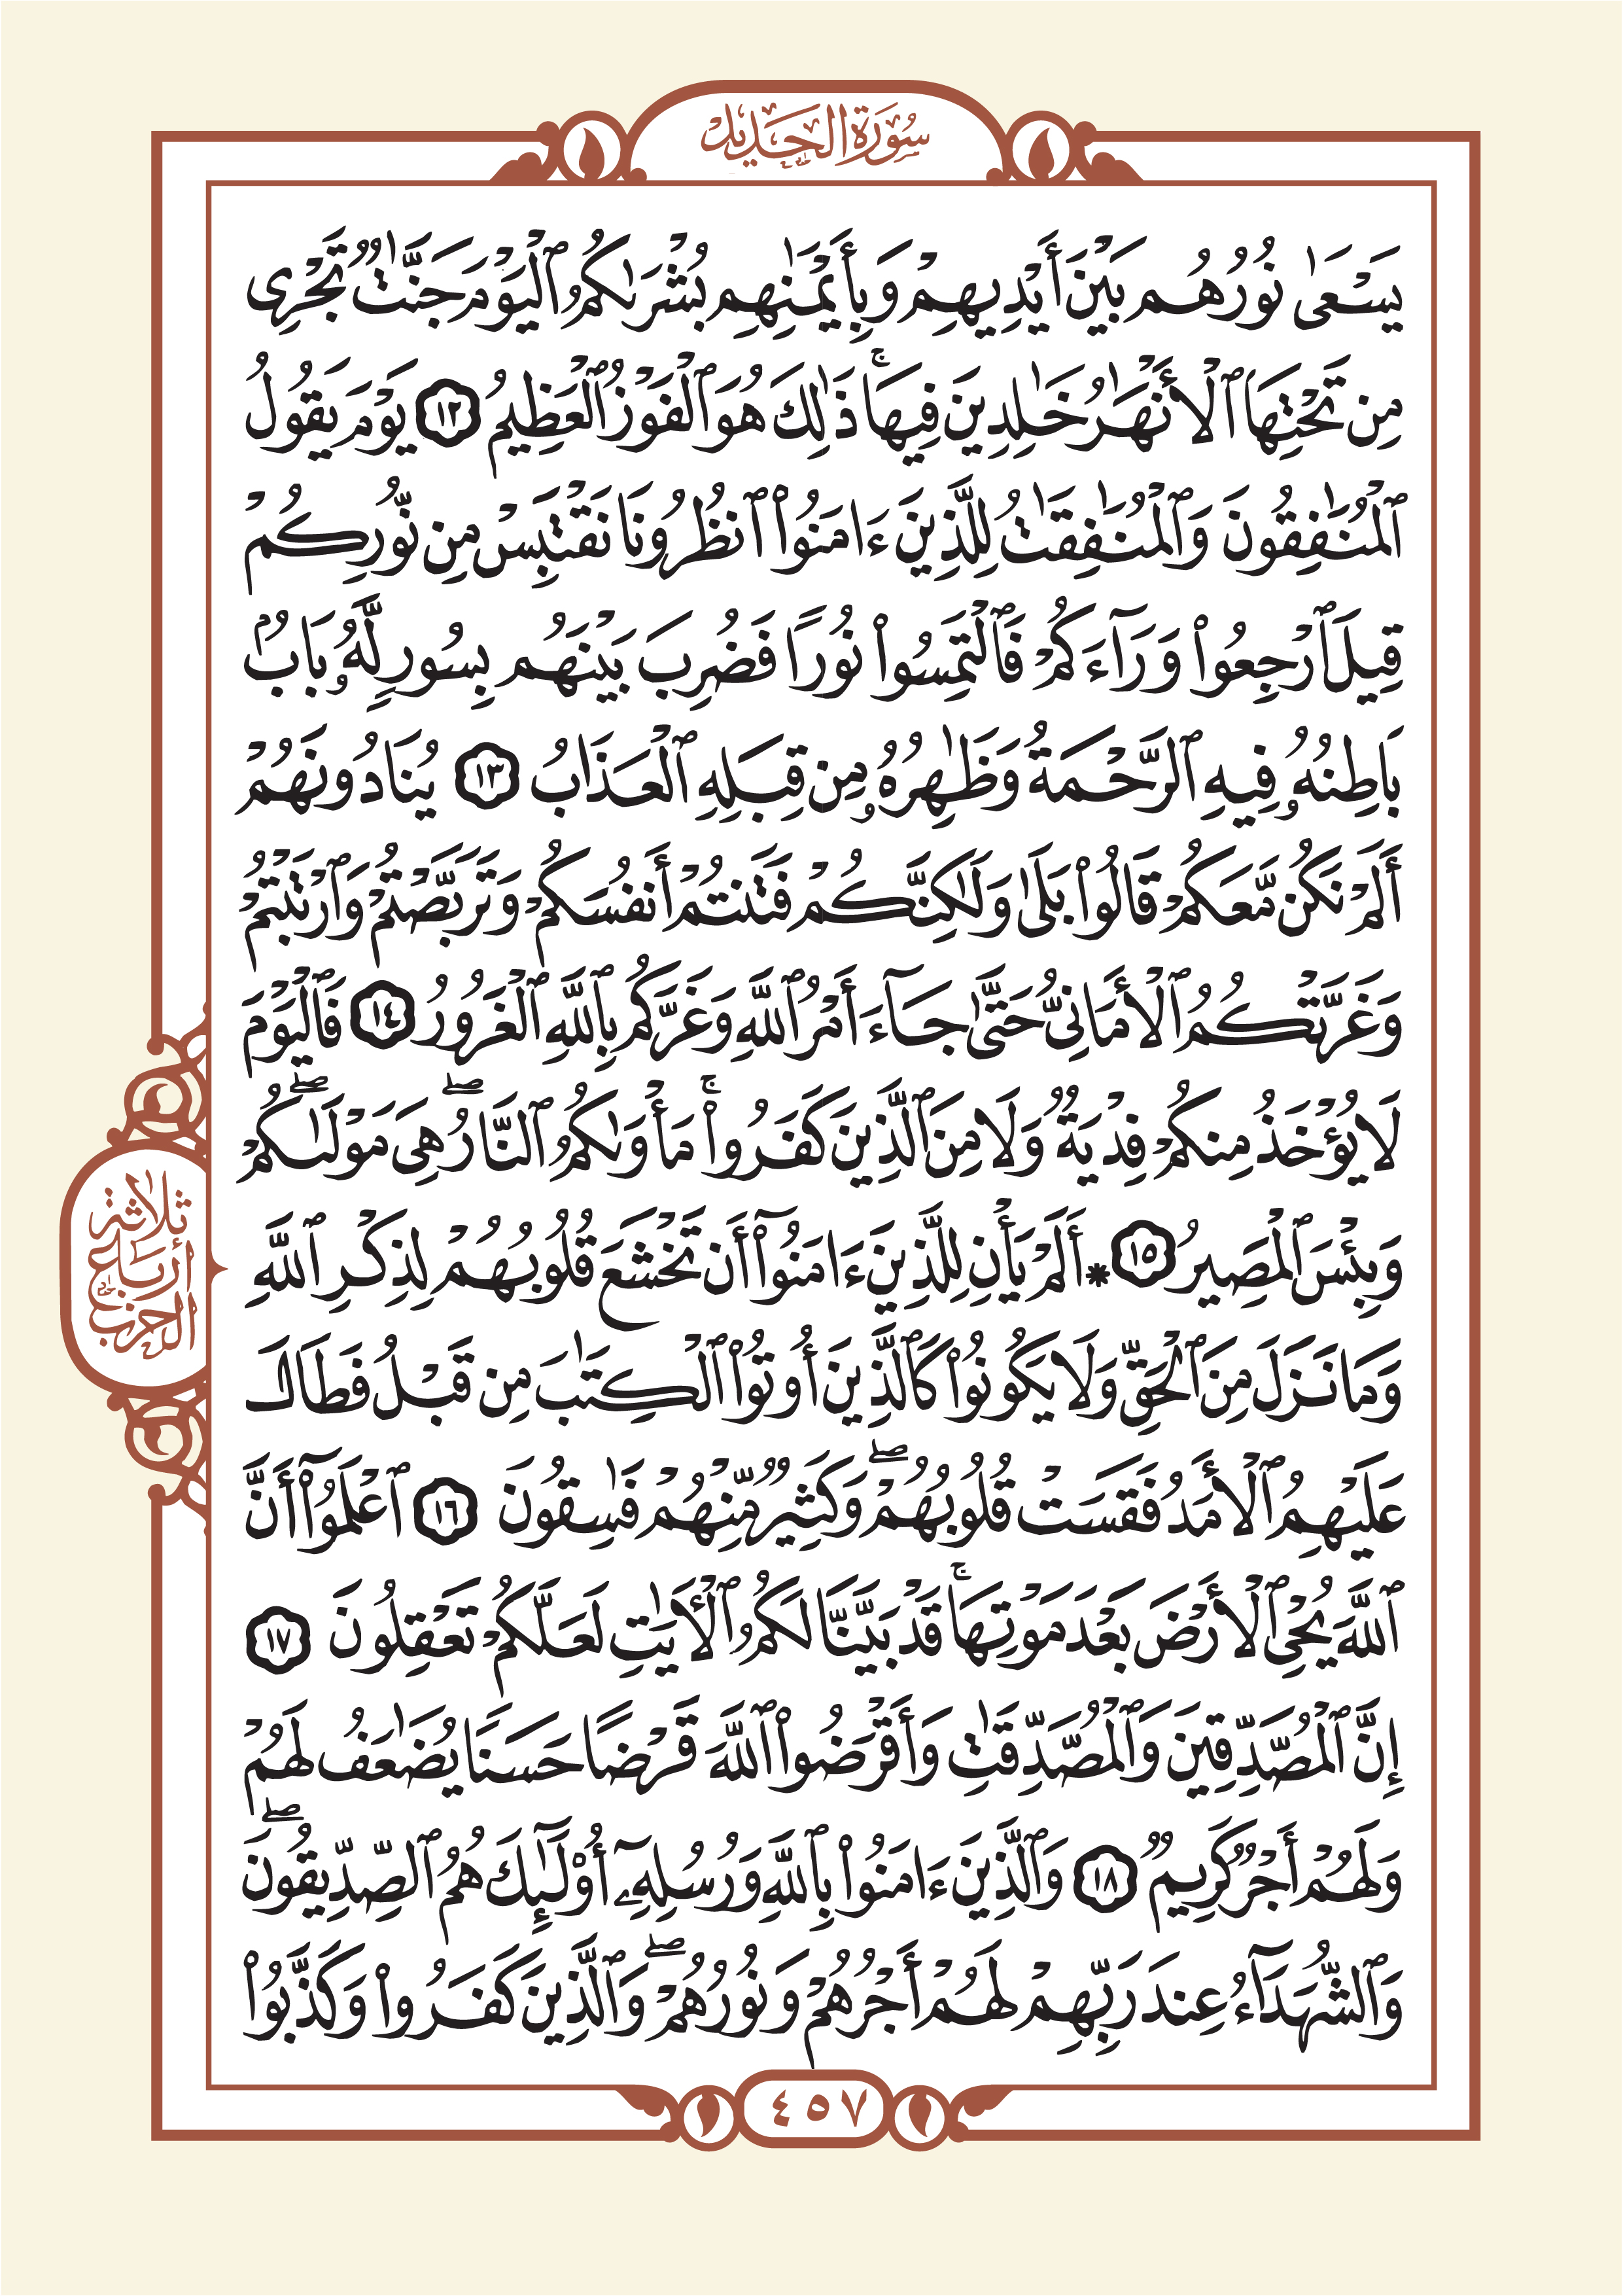 سُورَةُ الحَدِيد
يَسْعَىٰ نُورُهُم بَيْنَ أَيْدِيهِمْ وَبِأَيْمَٰنِهِم بُشْرَىٰكُمُ ٱلْيَوْمَ جَنَّٰتٌ تَجْرِى
مِن تَحْتِهَا ٱلْأَنْهَٰرُ خَٰلِدِينَ فِيهَا ۚ ذَٰلِكَ هُوَ ٱلْفَوْزُ ٱلْعَظِيمُ ١٢ يَوْمَ يَقُولُ
ٱلْمُنَٰفِقُونَ وَٱلْمُنَٰفِقَٰتُ لِلَّذِينَ ءَامَنُوا۟ ٱنظُرُونَا نَقْتَبِسْ مِن نُّورِكُمْ
قِيلَ ٱرْجِعُوا۟ وَرَآءَكُمْ فَٱلْتَمِسُوا۟ نُورًا فَضُرِبَ بَيْنَهُم بِسُورٍ لَّهُۥ بَابٌۢ
بَاطِنُهُۥ فِيهِ ٱلرَّحْمَةُ وَظَٰهِرُهُۥ مِن قِبَلِهِ ٱلْعَذَابُ ١٣ يُنَادُونَهُمْ
أَلَمْ نَكُن مَّعَكُمْ قَالُوا۟ بَلَىٰ وَلَٰكِنَّكُمْ فَتَنتُمْ أَنفُسَكُمْ وَتَرَبَّصْتُمْ وَٱرْتَبْتُمْ
وَغَرَّتْكُمُ ٱلْأَمَانِىُّ حَتَّىٰ جَآءَ أَمْرُ ٱللَّهِ وَغَرَّكُم بِٱللَّهِ ٱلْغَرُورُ ١٤ فَٱلْيَوْمَ
لَا يُؤْخَذُ مِنكُمْ فِدْيَةٌ وَلَا مِنَ ٱلَّذِينَ كَفَرُوا۟ ۚ مَأْوَىٰكُمُ ٱلنَّارُ ۖ هِىَ مَوْلَىٰكُمْ ۖ
وَبِئْسَ ٱلْمَصِيرُ ١٥ * أَلَمْ يَأْنِ لِلَّذِينَ ءَامَنُوٓا۟ أَن تَخْشَعَ قُلُوبُهُمْ لِذِكْرِ ٱللَّهِ
وَمَا نَزَلَ مِنَ ٱلْحَقِّ وَلَا يَكُونُوا۟ كَٱلَّذِينَ أُوتُوا۟ ٱلْكِتَٰبَ مِن قَبْلُ فَطَالَ
عَلَيْهِمُ ٱلْأَمَدُ فَقَسَتْ قُلُوبُهُمْ ۖ وَكَثِيرٌ مِّنْهُمْ فَٰسِقُونَ ١٦ ٱعْلَمُوٓا۟ أَنَّ
ٱللَّهَ يُحْىِ ٱلْأَرْضَ بَعْدَ مَوْتِهَا ۚ قَدْ بَيَّنَّا لَكُمُ ٱلْـَٔايَٰتِ لَعَلَّكُمْ تَعْقِلُونَ ١٧
إِنَّ ٱلْمُصَّدِّقِينَ وَٱلْمُصَّدِّقَٰتِ وَأَقْرَضُوا۟ ٱللَّهَ قَرْضًا حَسَنًا يُضَٰعَفُ لَهُمْ
وَلَهُمْ أَجْرٌ كَرِيمٌ ١٨ وَٱلَّذِينَ ءَامَنُوا۟ بِٱللَّهِ وَرُسُلِهِۦٓ أُو۟لَٰٓئِكَ هُمُ ٱلصِّدِّيقُونَ ۖ
وَٱلشُّهَدَآءُ عِندَ رَبِّهِمْ لَهُمْ أَجْرُهُمْ وَنُورُهُمْ ۖ وَٱلَّذِينَ كَفَرُوا۟ وَكَذَّبُوا۟
ثلاثة
أرباع
الحزب
٤٥٧